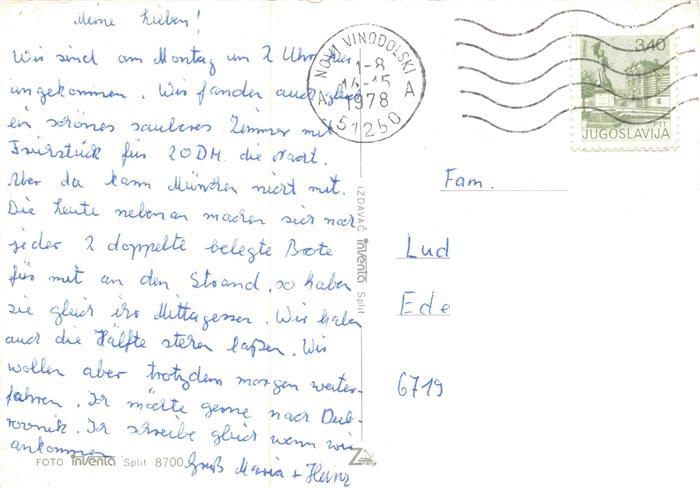 Meine Lieben!
Wir sind am Montag um 2 Uhr hier
angekommen. Wir fanden auch gleich
ein schönes sauberes Zimmer mit
Frürstück für 20 DM. die Nacht.
Aber da kann München nicht mit.
Die Leute nebenan machen sich noch
jeder 2 doppelte belegte Brote
für mit an den Strand, so haben
sie gleich ihr Mittagessen. Wir haben
auch die Hälfte stehen laßen. Wir
wollen aber trotzdem morgen weiter-
fahren. Ich möchte gerne nach Dub-
rovnik. Ich schreibe gleich wenn wir
ankommen
Gruß Maria + Heinz
FOTO inventa Split 8700
IZDAVAČ inventa Split
NOVI VINODOLSKI
1-8
14-15
1978
A A
51250
3,40
JUGOSLAVIJA
Fam.
Lud
Ede
6719